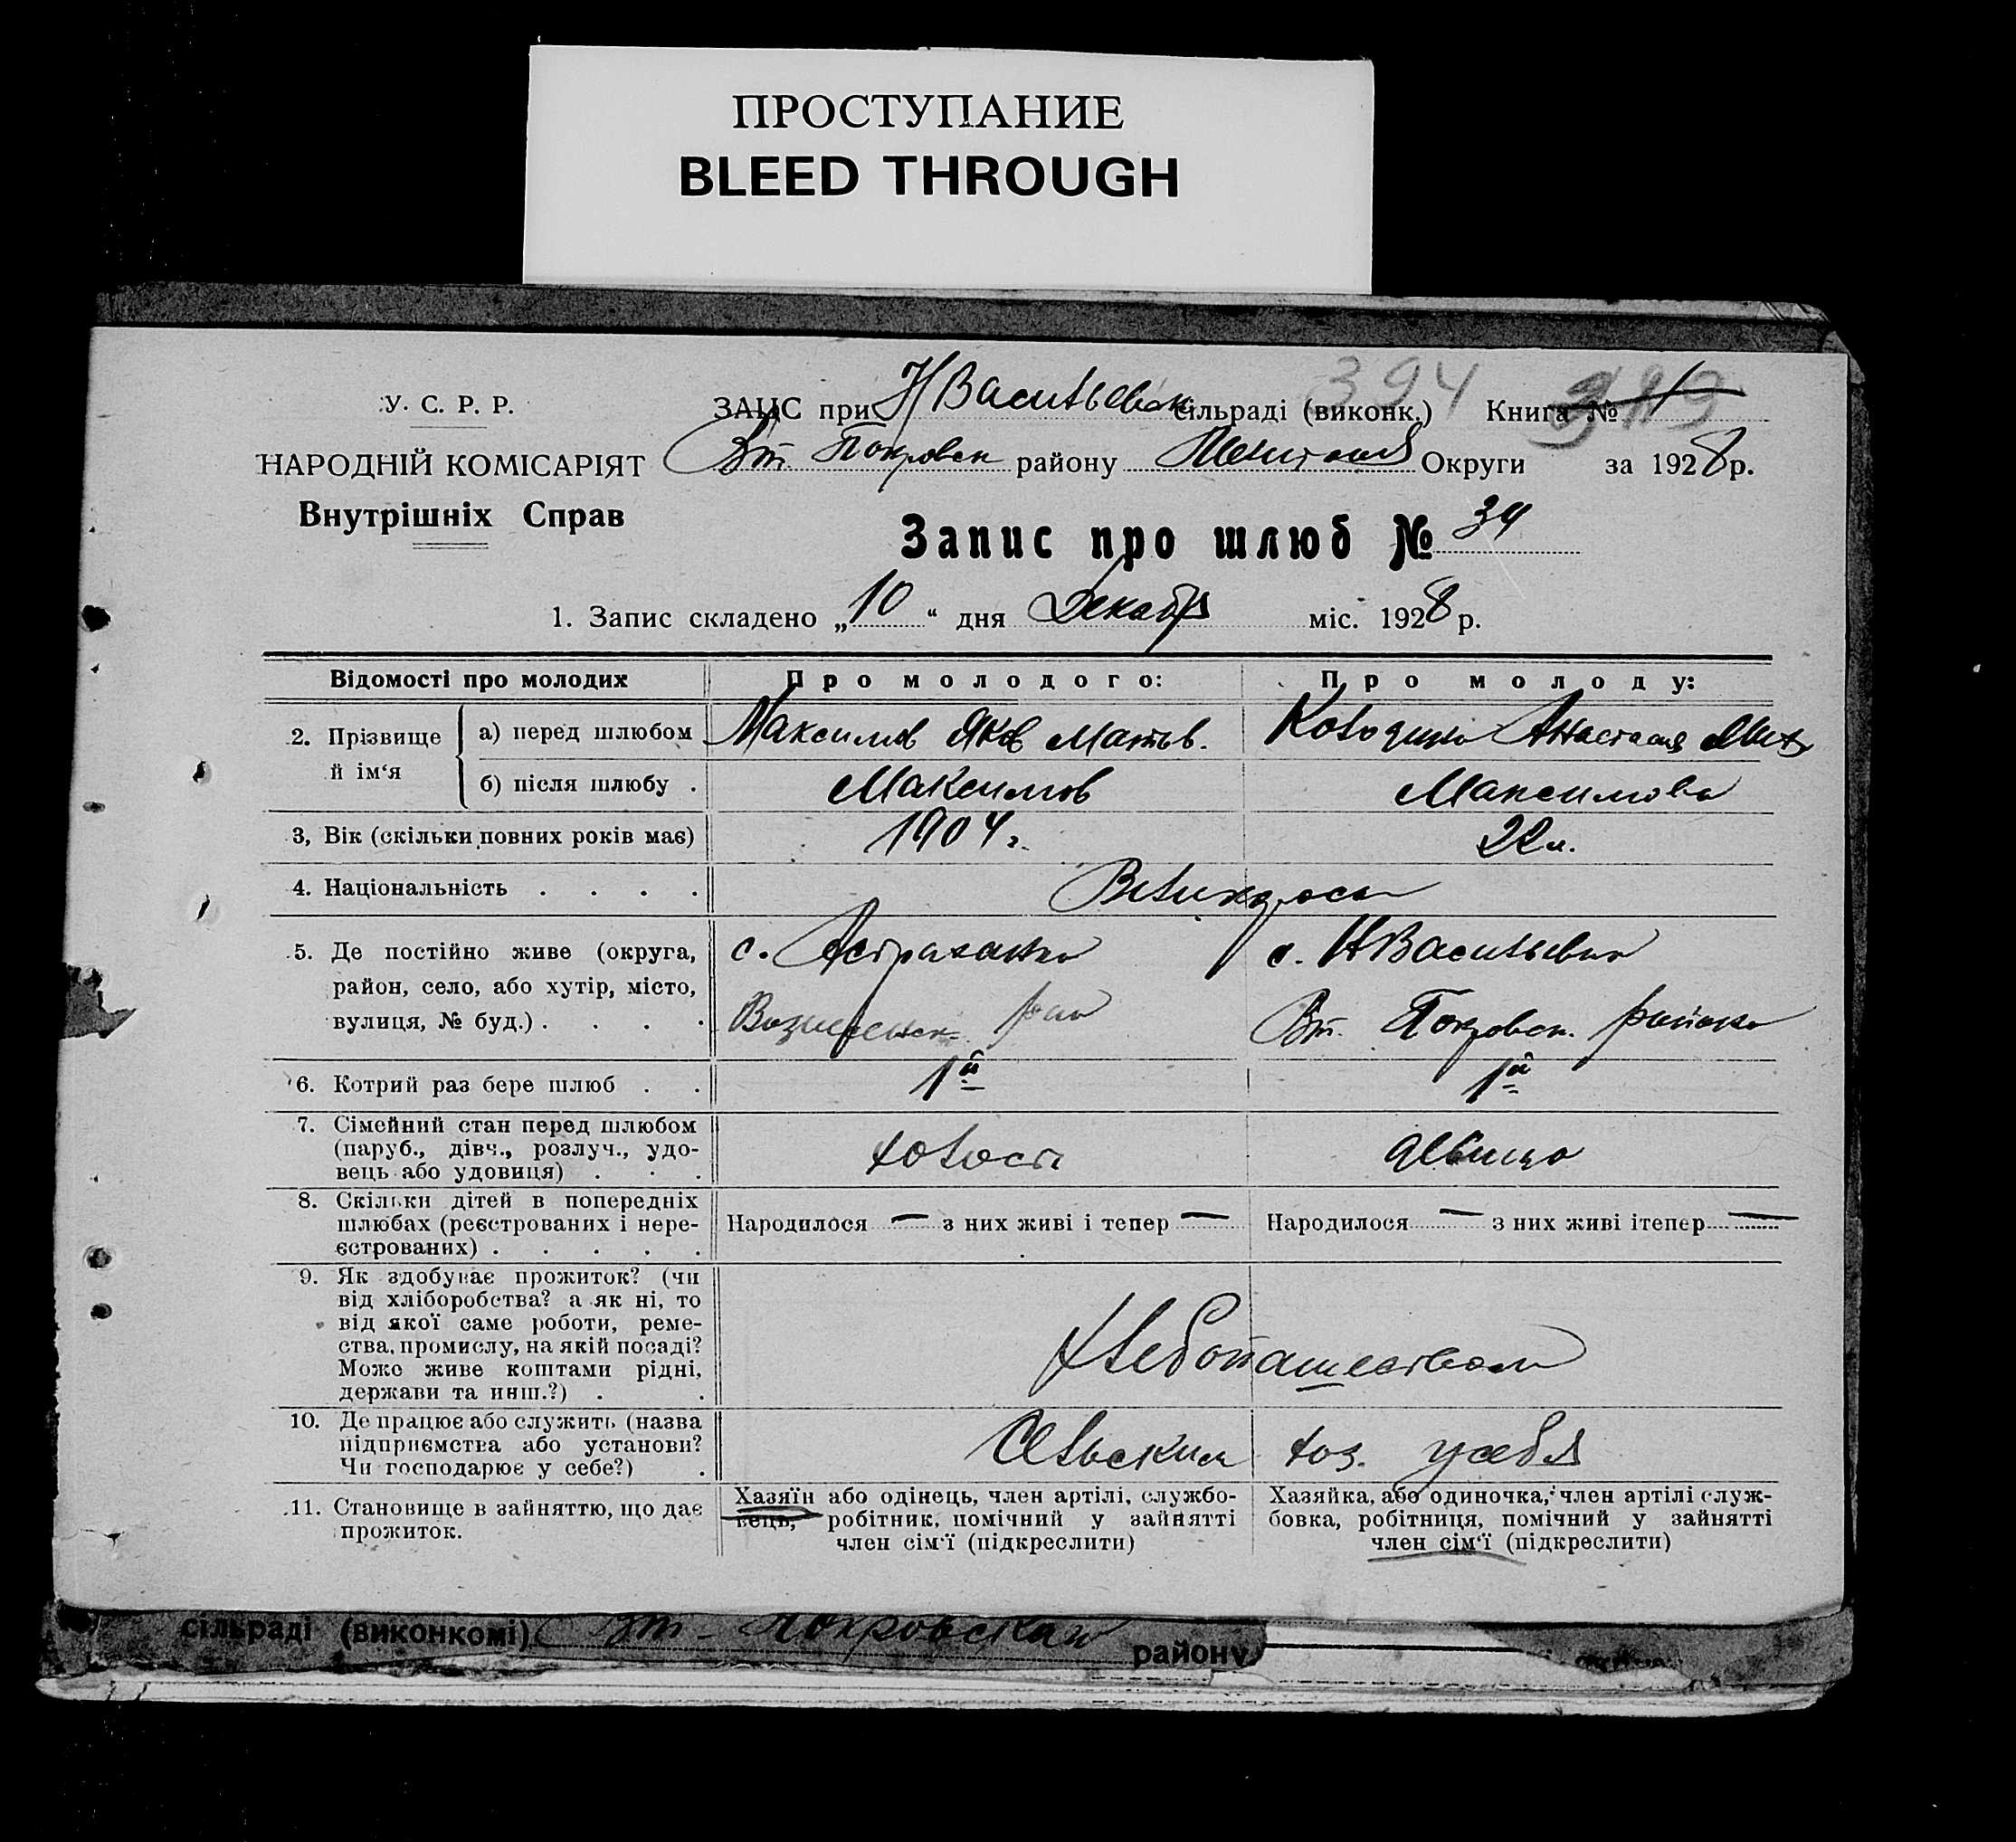 ПРОСТУПАНИЕ
BLEED THROUGH
У. С. Р. Р.
НАРОДНІЙ КОМІСАРІЯТ
Внутрішніх Справ
ЗАЦС при НВасильевск сільраді (виконк.) 394 Книга №
Вт. Покровск району Округи за 1928 р.
Запис про шлюб № 34
1. Запис складено „10“ дня Декабря міс. 1928 р.
Відомості про молодих Про молодого: Про молоду:
2. Прізвище й ім‘я
а) перед шлюбом Максимов Яков Матв. Анастасия
б) після шлюбу . Максимов Максимова
3, Вік (скільки повних років має) 1904 г. 22 л.
4. Національність . . . . Великросы
5. Де постійно живе (округа, с. Астраханка с. НВасильевка
район, село, або хутір, місто,
вулиця, № буд.) . . . . Вознесенск. рай Вт. Покровск. района
6. Котрий раз бере шлюб . . 1й 1й
7. Сімейний стан перед шлюбом
(паруб., дівч., розлуч., удо-
вець або удовиця) . . . холост девица
8. Скільки дітей в попередніх
шлюбах (реєстрованих і нере-
єстрованих) . . . . .
Народилося — з них живі і тепер — Народилося — з них живі ітепер —
9. Як здобуває прожиток? (чи
від хліборобства? а як ні, то
від якої саме роботи, реме-
ства, промислу, на якій посаді?
Може живе коштами рідні,
держави та инш.?) . . Хлебопашеством
10. Де працює або служить (назва
підприємства або установи?
Чи господарює у себе?) . Сельским хоз. у себя
11. Становище в зайняттю, що дає
прожиток.
Хазяїн або одінець, член артілі, службо-
вець, робітник, помічний у зайнятті
член сім‘ї (підкреслити)
Хазяйка, або одиночка, член артілі служ-
бовка, робітниця, помічний у зайнятті
член сім‘ї (підкреслити)
сільраді (виконкомі) Вт-Покровская району